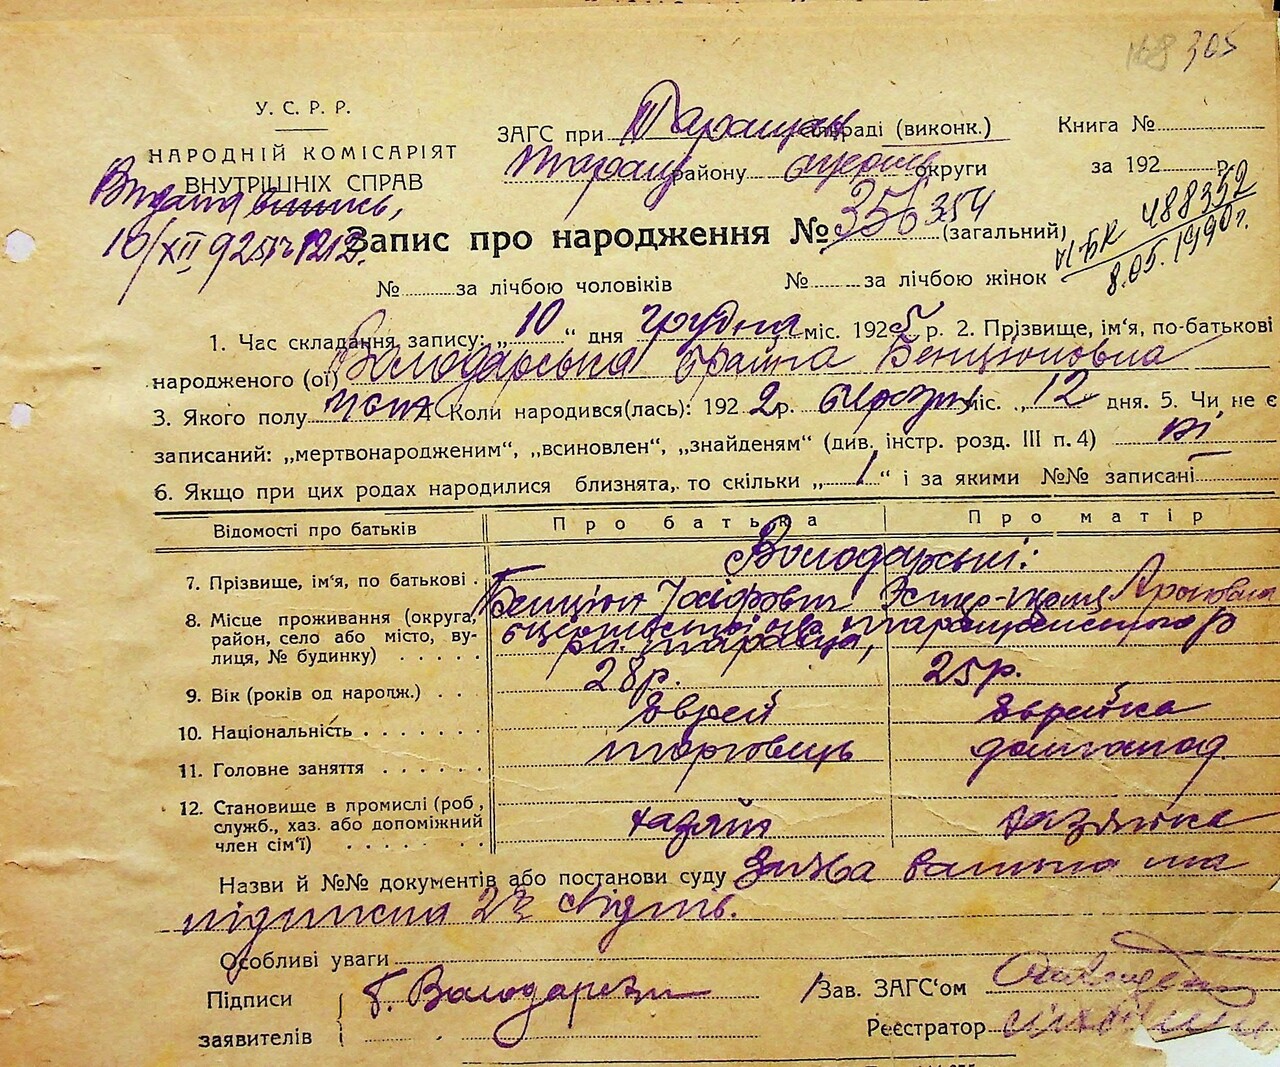 168 305
У. С. Р. Р.
НАРОДНІЙ КОМІСАРІЯТ
ВНУТРІШНІХ СПРАВ
Видана виписъ,
10/XII 925
ЗАГС при Таращан сільраді (виконк.)
Таращ району округи
Книга №
за 192 р.
Запис про народження № 356 354 (загальний)
№ за лічбою чоловіків № за лічбою жінок
І-БК 488352
8.05.1990г.
1. Час складання запису: „10“ дня грудня міс. 1925 р. 2. Прізвище, ім'я, по-батькові
народженого (ої) Володарська Бенціоновна
3. Якого полу жен 4 Коли народився(лась): 1922 р. березня міс. „12 дня. 5. Чи не є
записаний: „мертвонародженим“, „всиновлен“, „знайденям“ (див. інстр. розд. III п. 4) ні
6. Якщо при цих родах народилися близнята, то скільки „1“ і за якими №№ записані
Відомості про батьків Про батька Про матір
Володарські:
7. Прізвище, ім'я, по батькові Бенціон Йосіфович Естер- Ароновна
8. Місце проживання (округа, район, село або місто, вулиця, № будинку)
9. Вік (років од народж.) 28р. 25р.
10. Національність Єврей Єврейка
11. Головне заняття торговець домогоспод.
12. Становище в промислі (роб, служб., хаз. або допоміжний член сім'ї) хазяїн хазяйка
Назви й №№ документів або постанови суду Заява батька та
підписка 2х свідків.
Особливі уваги
Підписи заявителів Б. Володарский
Зав. ЗАГС'ом
Реєстратор